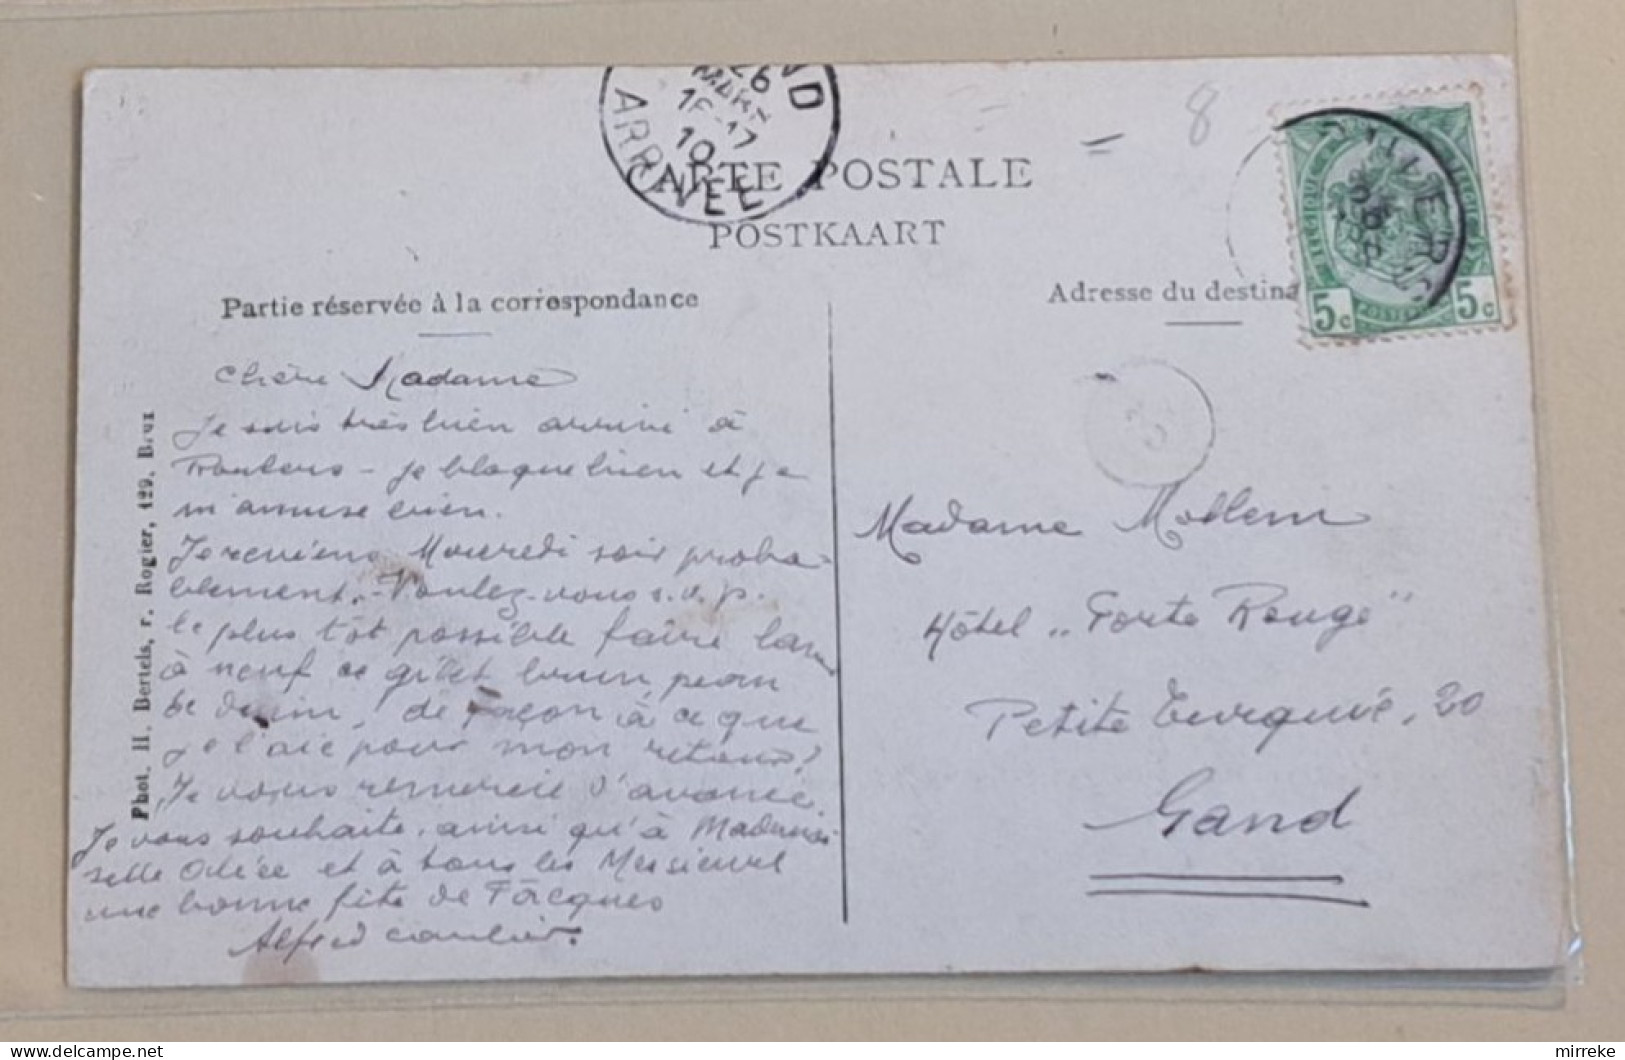 ND
26
MARS
16-17
10
ARRIVÉE
8
CARTE POSTALE
POSTKAART
BELGIQUE
5c
5c
POSTERIJEN
Partie réservée à la correspondance
Adresse du destina
Chère Madame
Je suis très bien arrivé à
– je blague bien et je
m'amuse bien.
Je reviens Mercredi soir proba-
blement. – Voulez-vous s. v. p.
le plus tôt possible faire
à neuf ce gilet brun,
de façon à ce que
je l'aie pour mon retour?
Je vous remercie d'avance.
Je vous souhaite, ainsi qu'à Mademoi
selle et à tous les Messieurs
une bonne fête de Pâques
Alfred
Phot. H. Bertels, r. Rogier, 129, Brux
Madame
Hôtel „Porte Rouge"
Petite Turquie, 20
Gand
mirreke